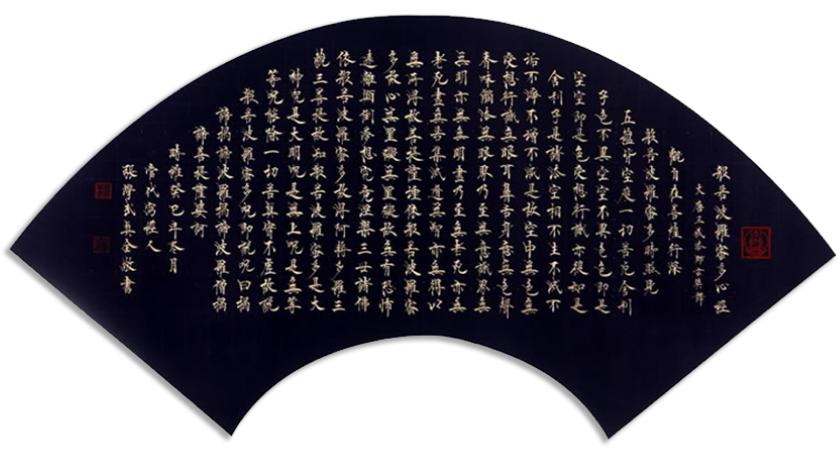 般若波羅蜜多心經
大唐三藏法師玄奘譯
觀自在菩薩行深
般若波羅蜜多時照見
五蘊皆空度一切苦厄舍利
子色不異空空不異色色即是
空空即是色受想行識亦復如是
舍利子是諸法空相不生不滅不
垢不淨不增不減是故空中無色無
受想行識無眼耳鼻舌身意無色聲
香味觸法無眼界乃至無意識界無
無明亦無無明盡乃至無老死亦無
老死盡無苦集滅道無智亦無得以
無所得故菩提薩埵依般若波羅蜜
多故心無罣礙無罣礙故無有恐怖
遠離顛倒夢想究竟涅槃三世諸佛
依般若波羅蜜多故得阿耨多羅三
藐三菩提故知般若波羅蜜多是大
神咒是大明咒是無上咒是無等
等咒能除一切苦真實不虛故說
般若波羅蜜多咒即說咒曰揭
諦揭諦波羅揭諦波羅僧揭
諦菩提薩婆訶
時維癸巳年冬月
當代寫經人
真金敬書